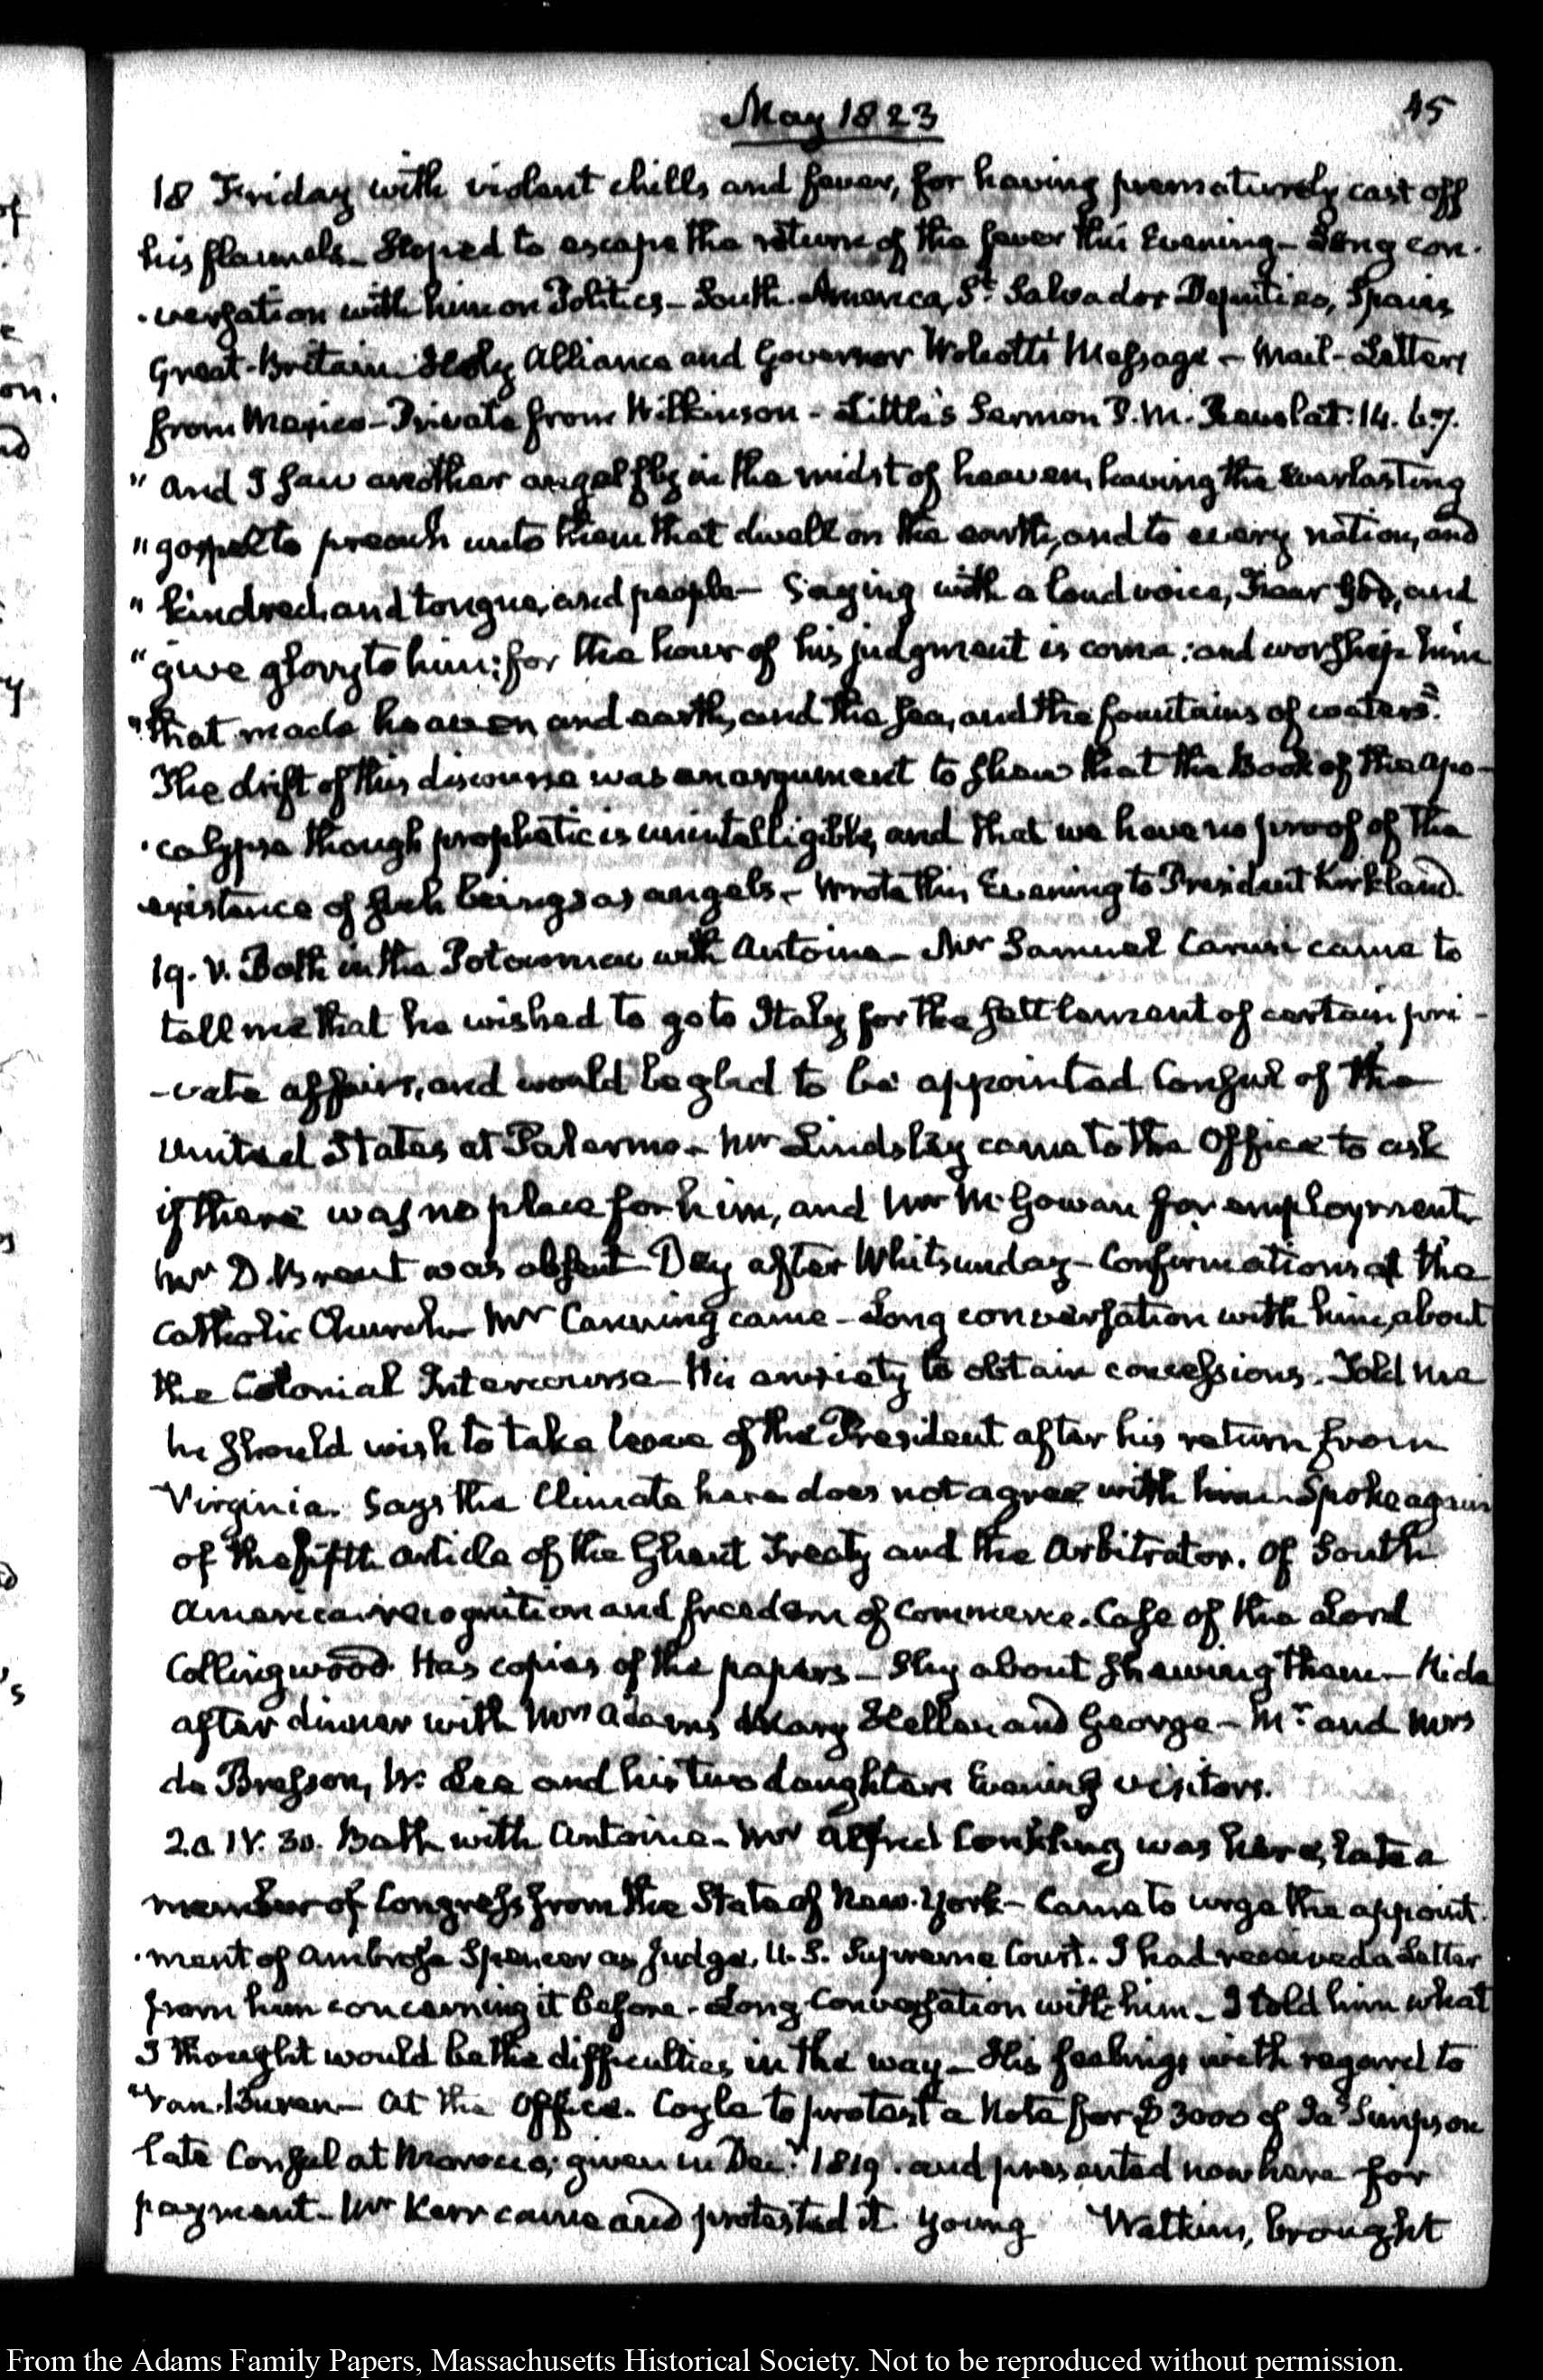 May 1823
45
18 Friday with violent chills and fever, for having prematurely cast off
his flannels. Hoped to escape the return of the fever this Evening – Long con-
-versation with him on Politics – South-America, St. Salvador Deputies, Spain,
Great-Britain Holy Alliance and Governor Wolcott's Message – Mail – Letters
from Mexico – Private from Wilkinson – Little's Sermon P.M. Revelat: 14. 6.7.
" And I saw another angel fly in the midst of heaven, having the everlasting
" gospel to preach unto them that dwell on the earth, and to every nation, and
" kindred, and tongue, and people – Saying with a loud voice, Fear God, and
" give glory to him; for the hour of his judgment is come: and worship him
" that made heaven and earth, and the sea, and the fountains of waters."
The drift of this discourse was an argument to shew that the Book of the Apo-
-calypse though prophetic is unintelligible, and that we have no proof of the
existence of such beings as angels. – Wrote this Evening to President Kirkland.
19. V. Bath in the Potowmac with Antoine – Mr Samuel Carusi came to
tell me that he wished to go to Italy for the settlement of certain pri-
-vate affairs, and would be glad to be appointed Consul of the
United States at Palermo – Mr Lindsley came to the Office to ask
if there was no place for him, and Mr McGowan for employment.
Mr D. Brent was absent – Day after Whitsunday – Confirmations at the
Catholic Church – Mr Canning came – Long conversation with him, about
the Colonial Intercourse – His anxiety to obtain concessions. Told me
he should wish to take leave of the President after his return from
Virginia. Says the Climate here does not agree with him – Spoke again
of the fifth article of the Ghent Treaty and the Arbitrator. Of South
American recognition and freedom of Commerce. Case of the Lord
Collingwood. Has copies of the papers – Shy about shewing them – Ride
after dinner with Mrs Adams, Mary Hellen and George – Mr. and Mrs
de Bresson, W. Lee and his two daughters Evening visitors.
20. IV. 30. Bath with Antoine – Mr Alfred Conkling was here, late a
member of Congress from the State of New-York – Came to urge the appoint-
-ment of Ambrose Spencer as Judge, U.S. Supreme Court. I had received a Letter
from him concerning it before. Long Conversation with him. I told him what
I thought would be the difficulties in the way – His feelings with regard to
Van-Buren – At the Office. Coyle to protest a Note for $3000 of Jas Simpson
late Consul at Morocco; given in Decr. 1819. and presented now here for
payment. Mr Kerr came and protested it. Young Watkins, brought
From the Adams Family Papers, Massachusetts Historical Society. Not to be reproduced without permission.